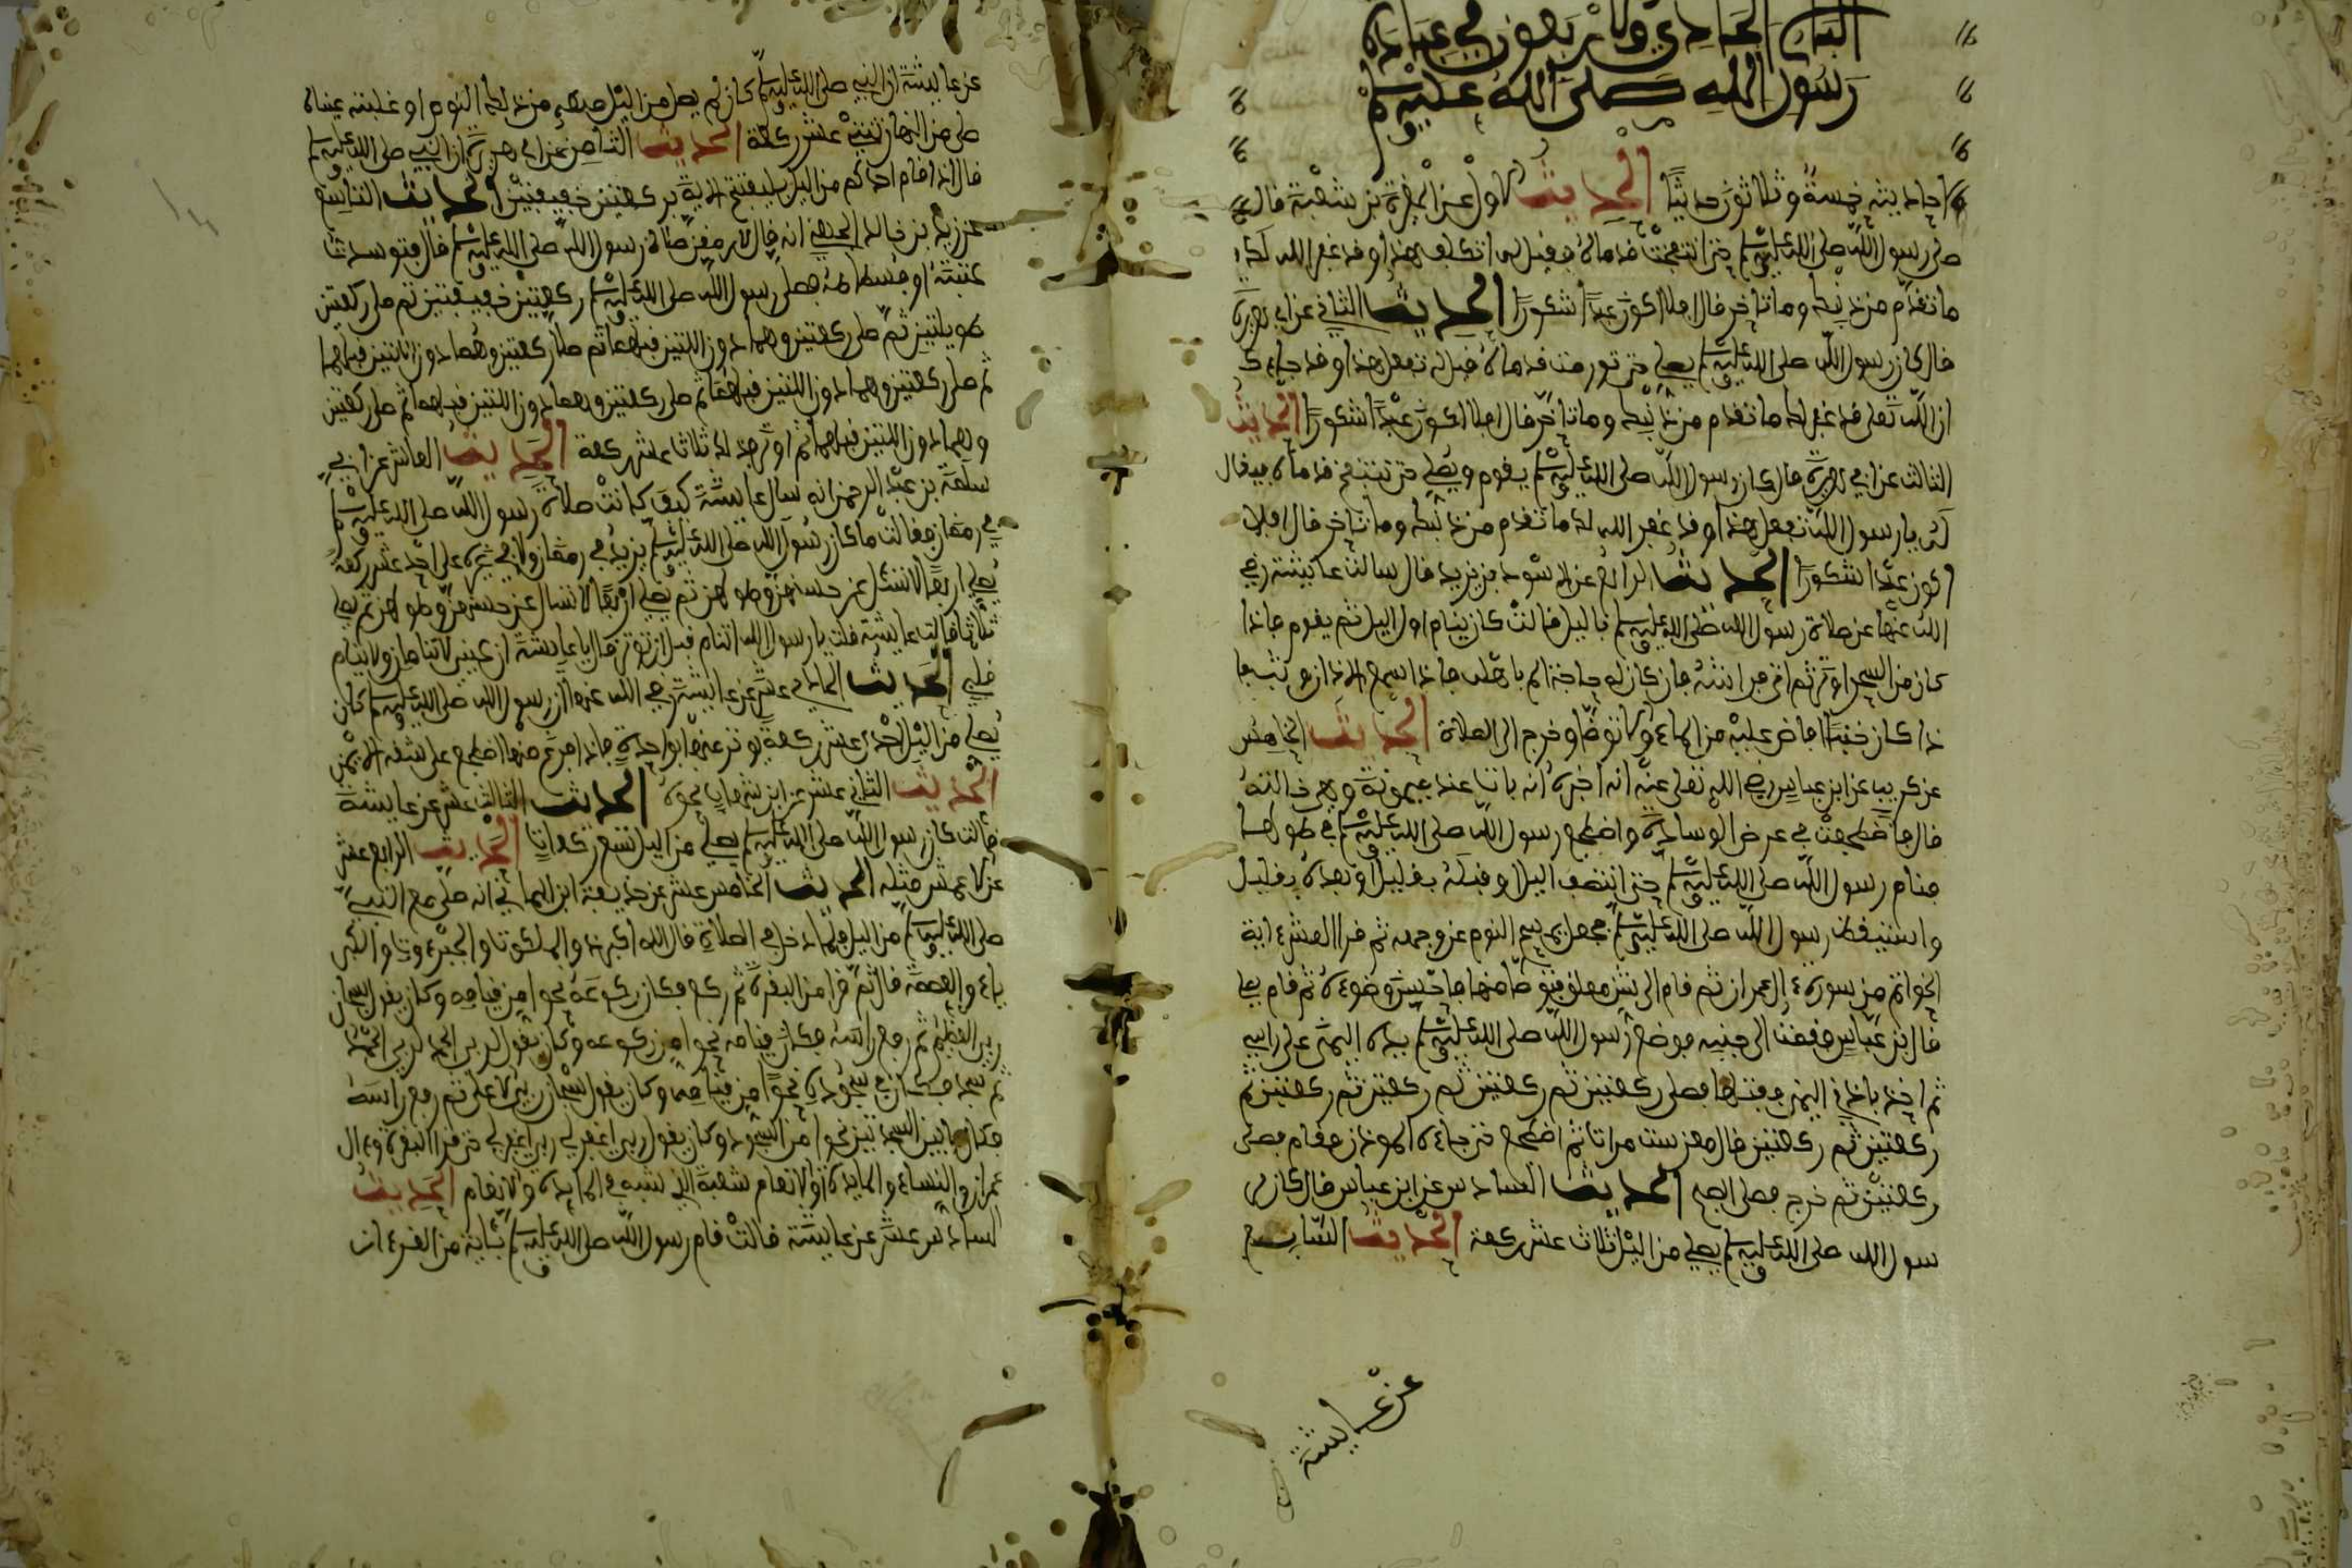 الباب الحادي والاربعون في عبادة
رسول الله صلى الله عليه وسلم
احاديثه خمسة وثلاثون حديثا الحديث الاول عن المغيرة بن شعبة قال
صلى رسول الله صلى الله عليه وسلم حتى انتفخت قدماه فقيل له اتتكلف هذا وقد غفر الله لك
ما تقدم من ذنبك وما تاخر قال افلا اكون عبدا شكورا الحديث الثاني عن ابي هريرة
قال كان رسول الله صلى الله عليه وسلم يصلي حتى تورمت قدماه فقيل له تفعل هذا وقد جاءك
ان الله تعلى قد غفر لك ما تقدم من ذنبك وما تاخر قال افلا اكون عبدا شكورا الحديث
الثالث عن ابي هريرة قال كان رسول الله صلى الله عليه وسلم يقوم ويصلي حتى تنتفخ قدماه فيقال
له يا رسول الله تفعل هذا وقد غفر الله لك ما تقدم من ذنبك وما تاخر قال افلا
اكون عبدا شكورا الحديث الرابع عن الاسود بن يزيد قال سالت عايشة رضي
الله عنها عن صلاة رسول الله صلى الله عليه وسلم باليل فقالت كان ينام اول اليل ثم يقوم فاذا
كان من السحر اوتر ثم اتى فراشه فان كان له حاجة الم باهله فاذا سمع الاذان وثب فا
ذا كان جنبا افاض عليه من الماء والا توضا وخرج الى الصلاة الحديث الخامس
عن كريب عن ابن عباس رضي الله تعلى عنه انه اخبره انه بات عند ميمونة وهي خالته
قال فاضطجعت في عرض الوسادة واضطجع رسول الله صلى الله عليه وسلم في طولها
فنام رسول الله صلى الله عليه وسلم حتى انتصف اليل او قبله بقليل او بعده بقليل
واستيقظ رسول الله صلى الله عليه وسلم فجعل يمسح النوم عن وجهه ثم قرا العشر ءاية
الخواتم من سورة ءال عمران ثم قام الى شن معلق فتوضا منها فاحسن وضوءه ثم قام يصلي
قال بن عباس فقمت الى جنبه فوضع رسول الله صلى الله عليه وسلم يده اليمنى على راسي
ثم اخذ باذني اليمنى ففتلها فصلى ركعتين ثم ركعتين ثم ركعتين ثم ركعتين ثم
ركعتين ثم ركعتين قال معن ست مرات ثم اضطجع حتى جاءه الموذن فقام فصلى
ركعتين ثم خرج فصلى الصبح الحديث السادس عن ابن عباس قال كان ر
سول الله صلى الله عليه وسلم يصلي من اليل ثلاث عشر ركعة الحديث السابع
عن عايشة
عن عايشة ان النبي صلى الله عليه وسلم كان اذا لم يصل من اليل منعه من ذلك النوم او غلبته عيناه
صلى من النهار ثنتي عشر ركعة الحديث الثامن عن ابي هريرة ان النبي صلى الله عليه وسلم
قال اذا قام احدكم من اليل فليفتتح صلاته بركعتين خفيفتين الحديث التاسع
عن زيد بن خالد الجهني انه قال لارمقن صلاة رسول الله صلى الله عليه وسلم قال فتوسدت
عتبته او فسطاطه فصلى رسول الله صلى الله عليه وسلم ركعتين خفيفتين ثم صلى ركعتين
طويلتين ثم صلى ركعتين وهما دون اللتين قبلهما ثم صلى ركعتين وهما دون اللتين قبلهما
ثم صلى ركعتين وهما دون اللتين قبلهما ثم صلى ركعتين وهما دون اللتين قبلهما ثم صلى ركعتين
وهما دون اللتين قبلهما ثم اوتر فذلك ثلاثا عشر ركعة الحديث العاشر عن ابي
سلمة بن عبد الرحمن انه سال عايشة كيف كانت صلاة رسول الله صلى الله عليه وسلم
في رمضان فقالت ما كان رسول الله صلى الله عليه وسلم يزيد في رمضان ولا في غيره على احد عشر ركعة
يصلي اربعا لا تسئل عن حسنهن وطولهن ثم يصلي اربعا لا تسال عن حسنهن وطولهن ثم يصلي
ثلاثا قالت عايشة قلت يا رسول الله اتنام قبل ان توتر قال يا عايشة ان عيني تنامان ولا ينام
قلبي الحديث الحادي عشر عن عايشة رضي الله عنها ان رسول الله صلى الله عليه وسلم كان
يصلي من اليل احدى عشر ركعة يوتر منها بواحدة فاذا فرغ منها اضطجع على شقه الايمن
الحديث الثاني عشر عن ابن شهاب نحوه الحديث الثالث عشر عن عايشة
قالت كان رسول الله صلى الله عليه وسلم يصلي من اليل تسع ركعات الحديث الرابع عشر
عن الاعمش مثله الحديث الخامس عشر عن حذيفة ابن اليماني انه صلى مع النبي
صلى الله عليه وسلم من اليل فلما دخل في الصلاة قال الله اكبر ذو الملكوت والجبروت والكبر
ياء والعظمة قال ثم قرا من البقرة ثم ركع فكان ركوعه نحوا من قيامه وكان يقول سبحان
ربي العظيم ثم رفع راسه فكان قيامه نحوا من ركوعه وكان يقول لربي الحمد لربي الحمد
ثم سجد فكان سجوده نحوا من قيامه وكان يقول سبحان ربي الاعلى ثم رفع راسه
فكان ما بين السجدتين نحوا من السجود وكان يقول ربي اغفر لي ربي اغفر لي حتى قرا البقرة وءال
عمران والنساء والمايدة او الانعام شعبة الذي شبه في المايدة والانعام الحديث
السادس عشر عن عايشة قالت قام رسول الله صلى الله عليه وسلم بئاية من القرءان